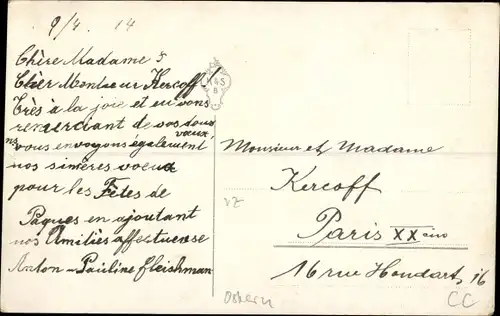 9/4 14
Chère Madame &
Cher Monsieur Kercoff!
Très à la joie et en vous
remerciant de vos doux
voeux
ns vous envoyons également
nos simères voeux
pour les Fêtes de
Paques en ajoutant
nos Amitiés affectuense
Anton - Pauline Fleishman
H&S
B
Monsieur et Madame
Kercoff
VZ
Paris XX èm
16 rue Houdart, 16
Ostern
CC